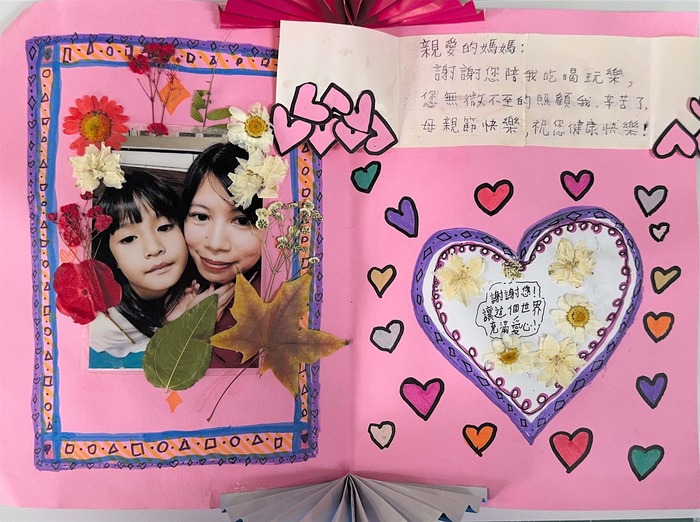 親愛的媽媽:
謝謝您陪我吃喝玩樂,
您無微不至的照顧我.辛苦了,
母親節快樂,祝您健康快樂!
謝謝您!
讓這個世界
充滿愛心!